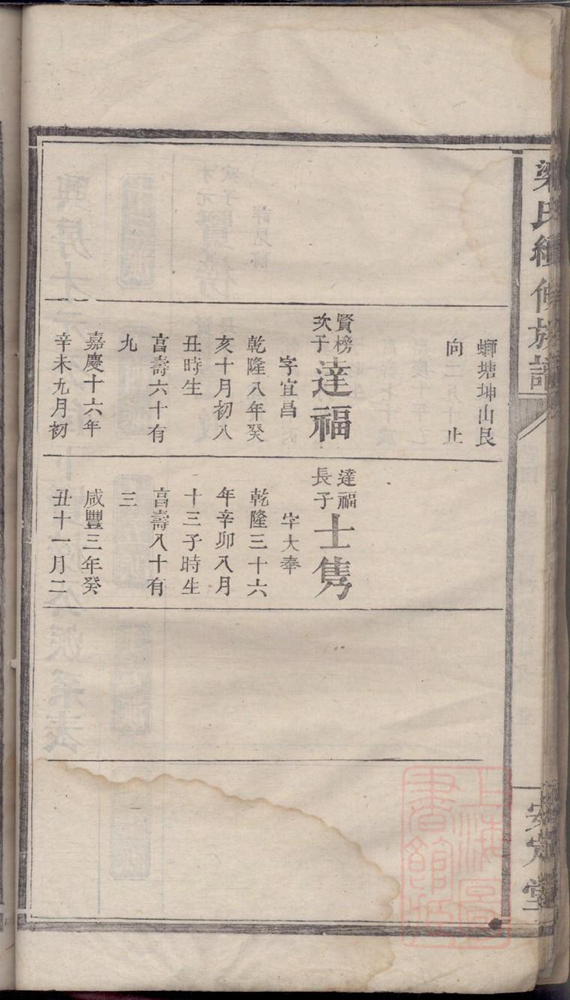 梁氏續修族譜
安定堂
螄塘坤山艮
向
賢榜
次子
達福
字宜昌
乾隆八年癸
亥十月初八
丑時生
亯壽六十有
九
嘉慶十六年
辛未九月初
達福
長子
士雋
字大奉
乾隆三十六
年辛卯八月
十三子時生
亯壽八十有
三
咸豐三年癸
丑十一月二
上海圖書館藏